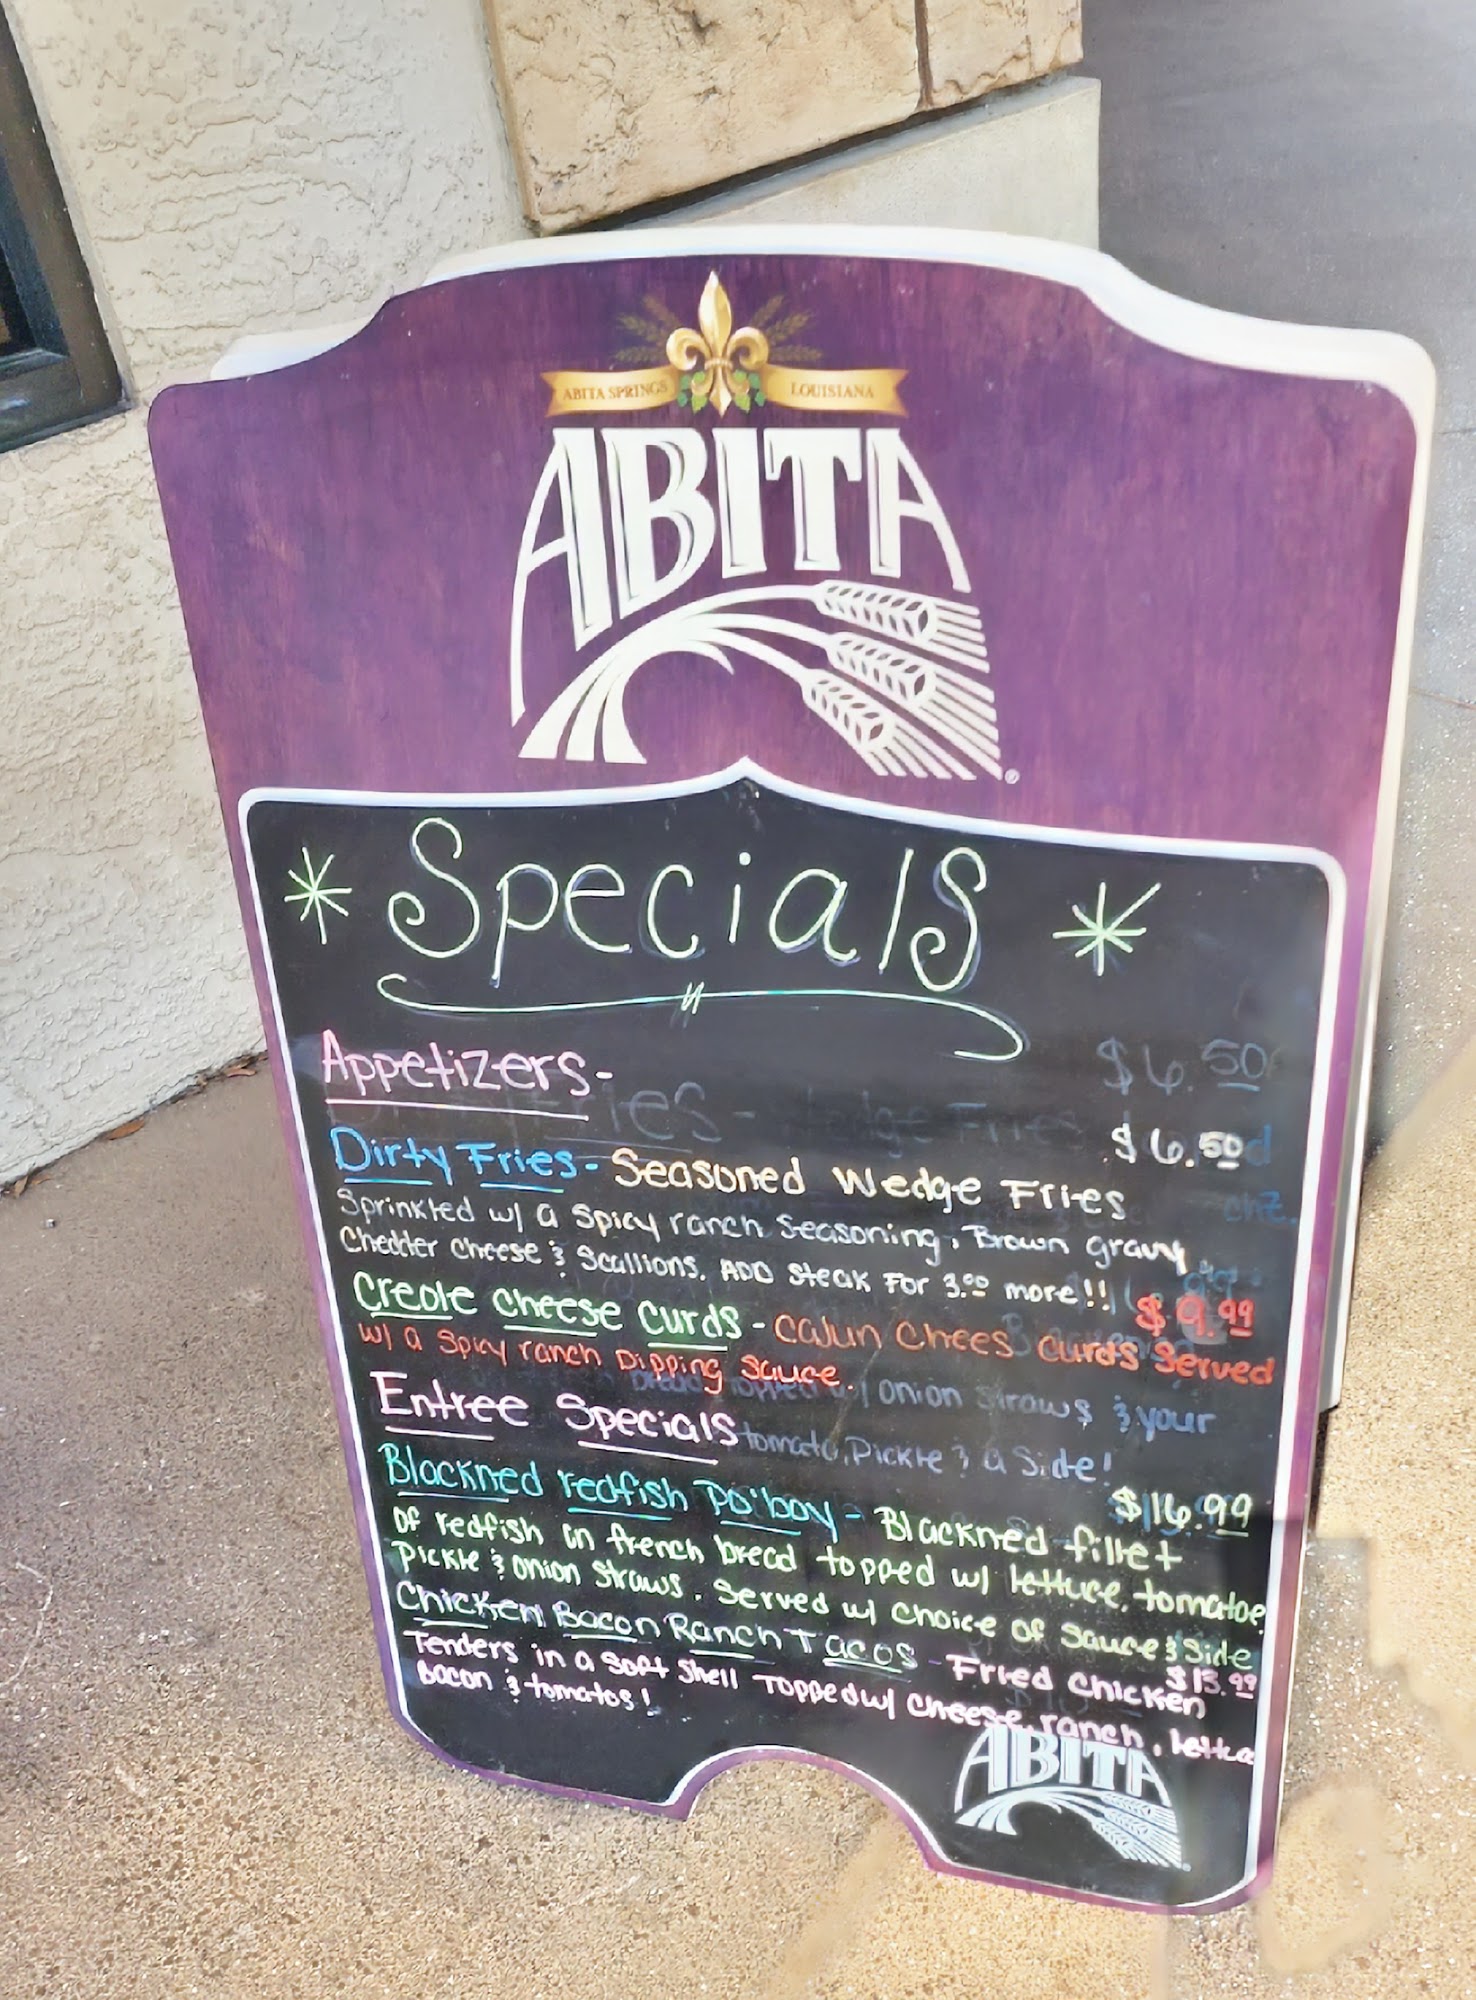 ABITA SPRINGS LOUISIANA
ABITA
®
* Specials *
Appetizers-
$6.50
$6.50
Dirty Fries - Seasoned Wedge Fries
Sprinkled w/ a Spicy ranch Seasoning, Brown gravy
Chedder cheese & Scallions. ADD Steak For 3.00 more!!
$9.99
Creole Cheese Curds - Cajun Chees Curds Served
w/ a Spicy ranch Dipping Sauce.
onion straws & your
Entree Specials
tomato, Pickle & a Side!
$16.99
Blackned redfish Po'boy - Blackned fillet
Of redfish on french bread topped w/ lettuce, tomatoe,
Pickle & Onion Straws. Served w/ Choice of Sauce & Side
$13.99
Chicken Bacon Ranch Tacos - Fried Chicken
Tenders in a Soft Shell Topped w/ cheese, ranch, lettuce
Bacon & tomatos!
ABITA